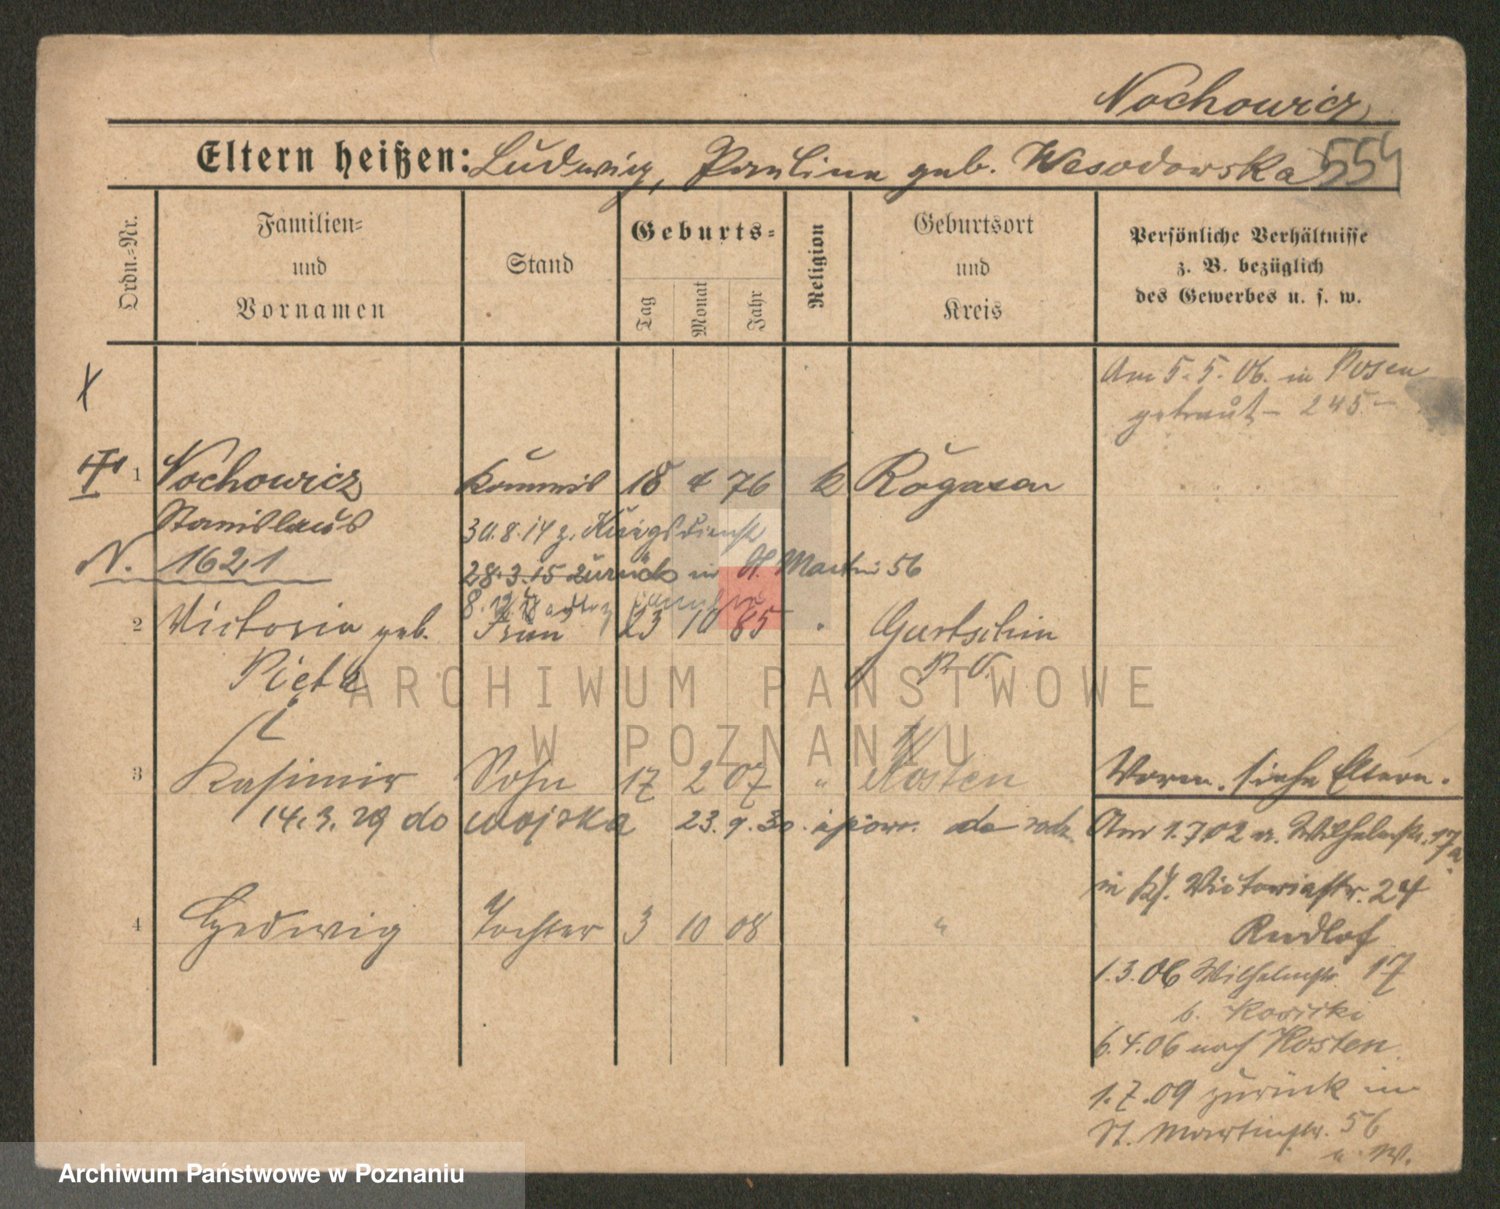 Nochowicz
Eltern heißen: Ludwig, Paulina geb. Wesodowska 554
Ordn.-Nr.
Familien- und Vornamen
Stand
Geburts-
Tag Monat Jahr
Religion
Geburtsort und Kreis
Persönliche Verhältnisse z. B. bezüglich des Gewerbes u. s. w.
Am 5.5.06. in Posen
getraut - 245 -
X
1 Nochowicz Kommis 18 4 76 k Rogasen
Stanislaus 30.8.14 z. Kriegsdienst
N. 1621 28.3.15 zurück in St. Martin 56
8.12.18
2 Victoria geb. Frau 23 10 85 " Gurtschin
Pięta P. O.
3 Kasimir Sohn 17 2 07 " Kosten Vorm. siehe Eltern.
14.3.29 do wojska 23.9.30. do Am 1.7.02 n. Wilhelmstr. 17a
in Victoriastr. 24
4 Hedwig Tochter 3 10 08 " Rudlof
1.3.06 Wilhelmstr. 17
b. Kosicki
6.4.06 nach Kosten
1.7.09 zurück in
St. Martinstr. 56
u. W.
ARCHIWUM PAŃSTWOWE
W POZNANIU
Archiwum Państwowe w Poznaniu